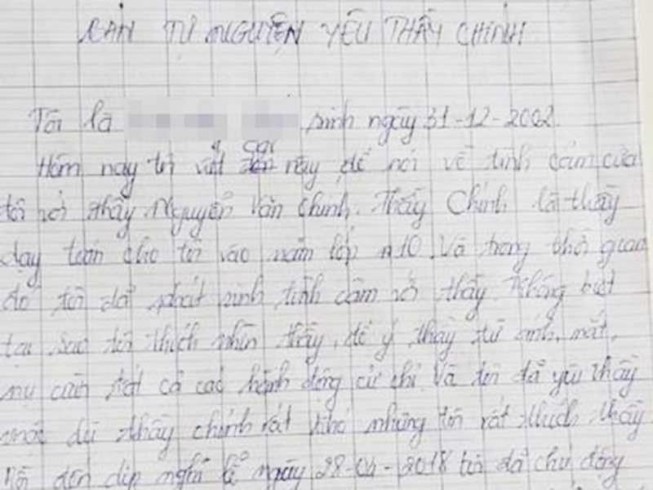 BẢN TỰ NGUYỆN YÊU THẦY CHÍNH
Tôi là sinh ngày 31-12-2002.
Hôm nay tôi viết cái này để nói về tình cảm của
tôi với thầy Nguyễn Văn Chính. Thầy Chính là thầy
dạy toán cho tôi vào năm lớp 10. Và trong thời gian
đó tôi đã phát sinh tình cảm với thầy. Không biết
tại sao tôi thích nhìn thầy, để ý thầy từ ánh mắt,
nụ cười tất cả các hành động cử chỉ. Và tôi đã yêu thầy
mặc dù thầy chính rất khó nhưng tôi rất thích thầy
đến dịp nghỉ lễ ngày 28-04-2018 tôi đã chủ động